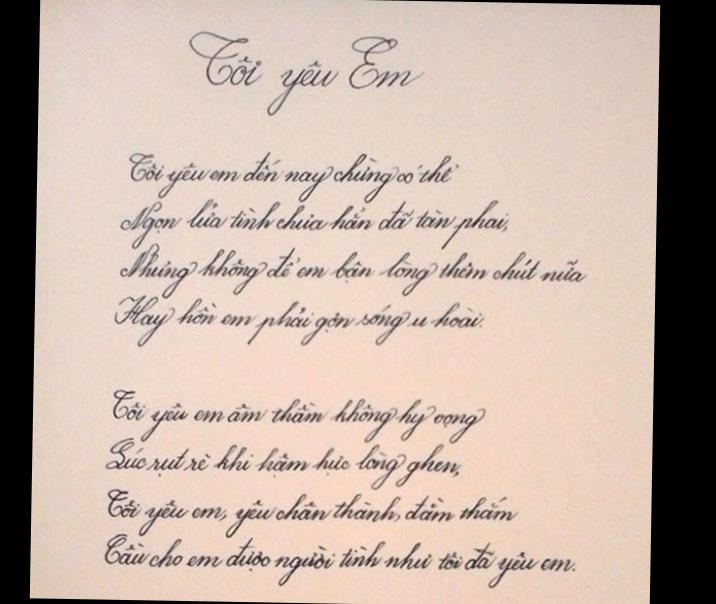 Tôi yêu Em
Tôi yêu em đến nay chừng có thể
Ngọn lửa tình chưa hẳn đã tàn phai,
Nhưng không để em bận lòng thêm chút nữa
Hay hồn em phải gợn sóng u hoài.
Tôi yêu em âm thầm không hy vọng
Lúc rụt rè khi hậm hực lòng ghen,
Tôi yêu em, yêu chân thành, đằm thắm
Cầu cho em được người tình như tôi đã yêu em.